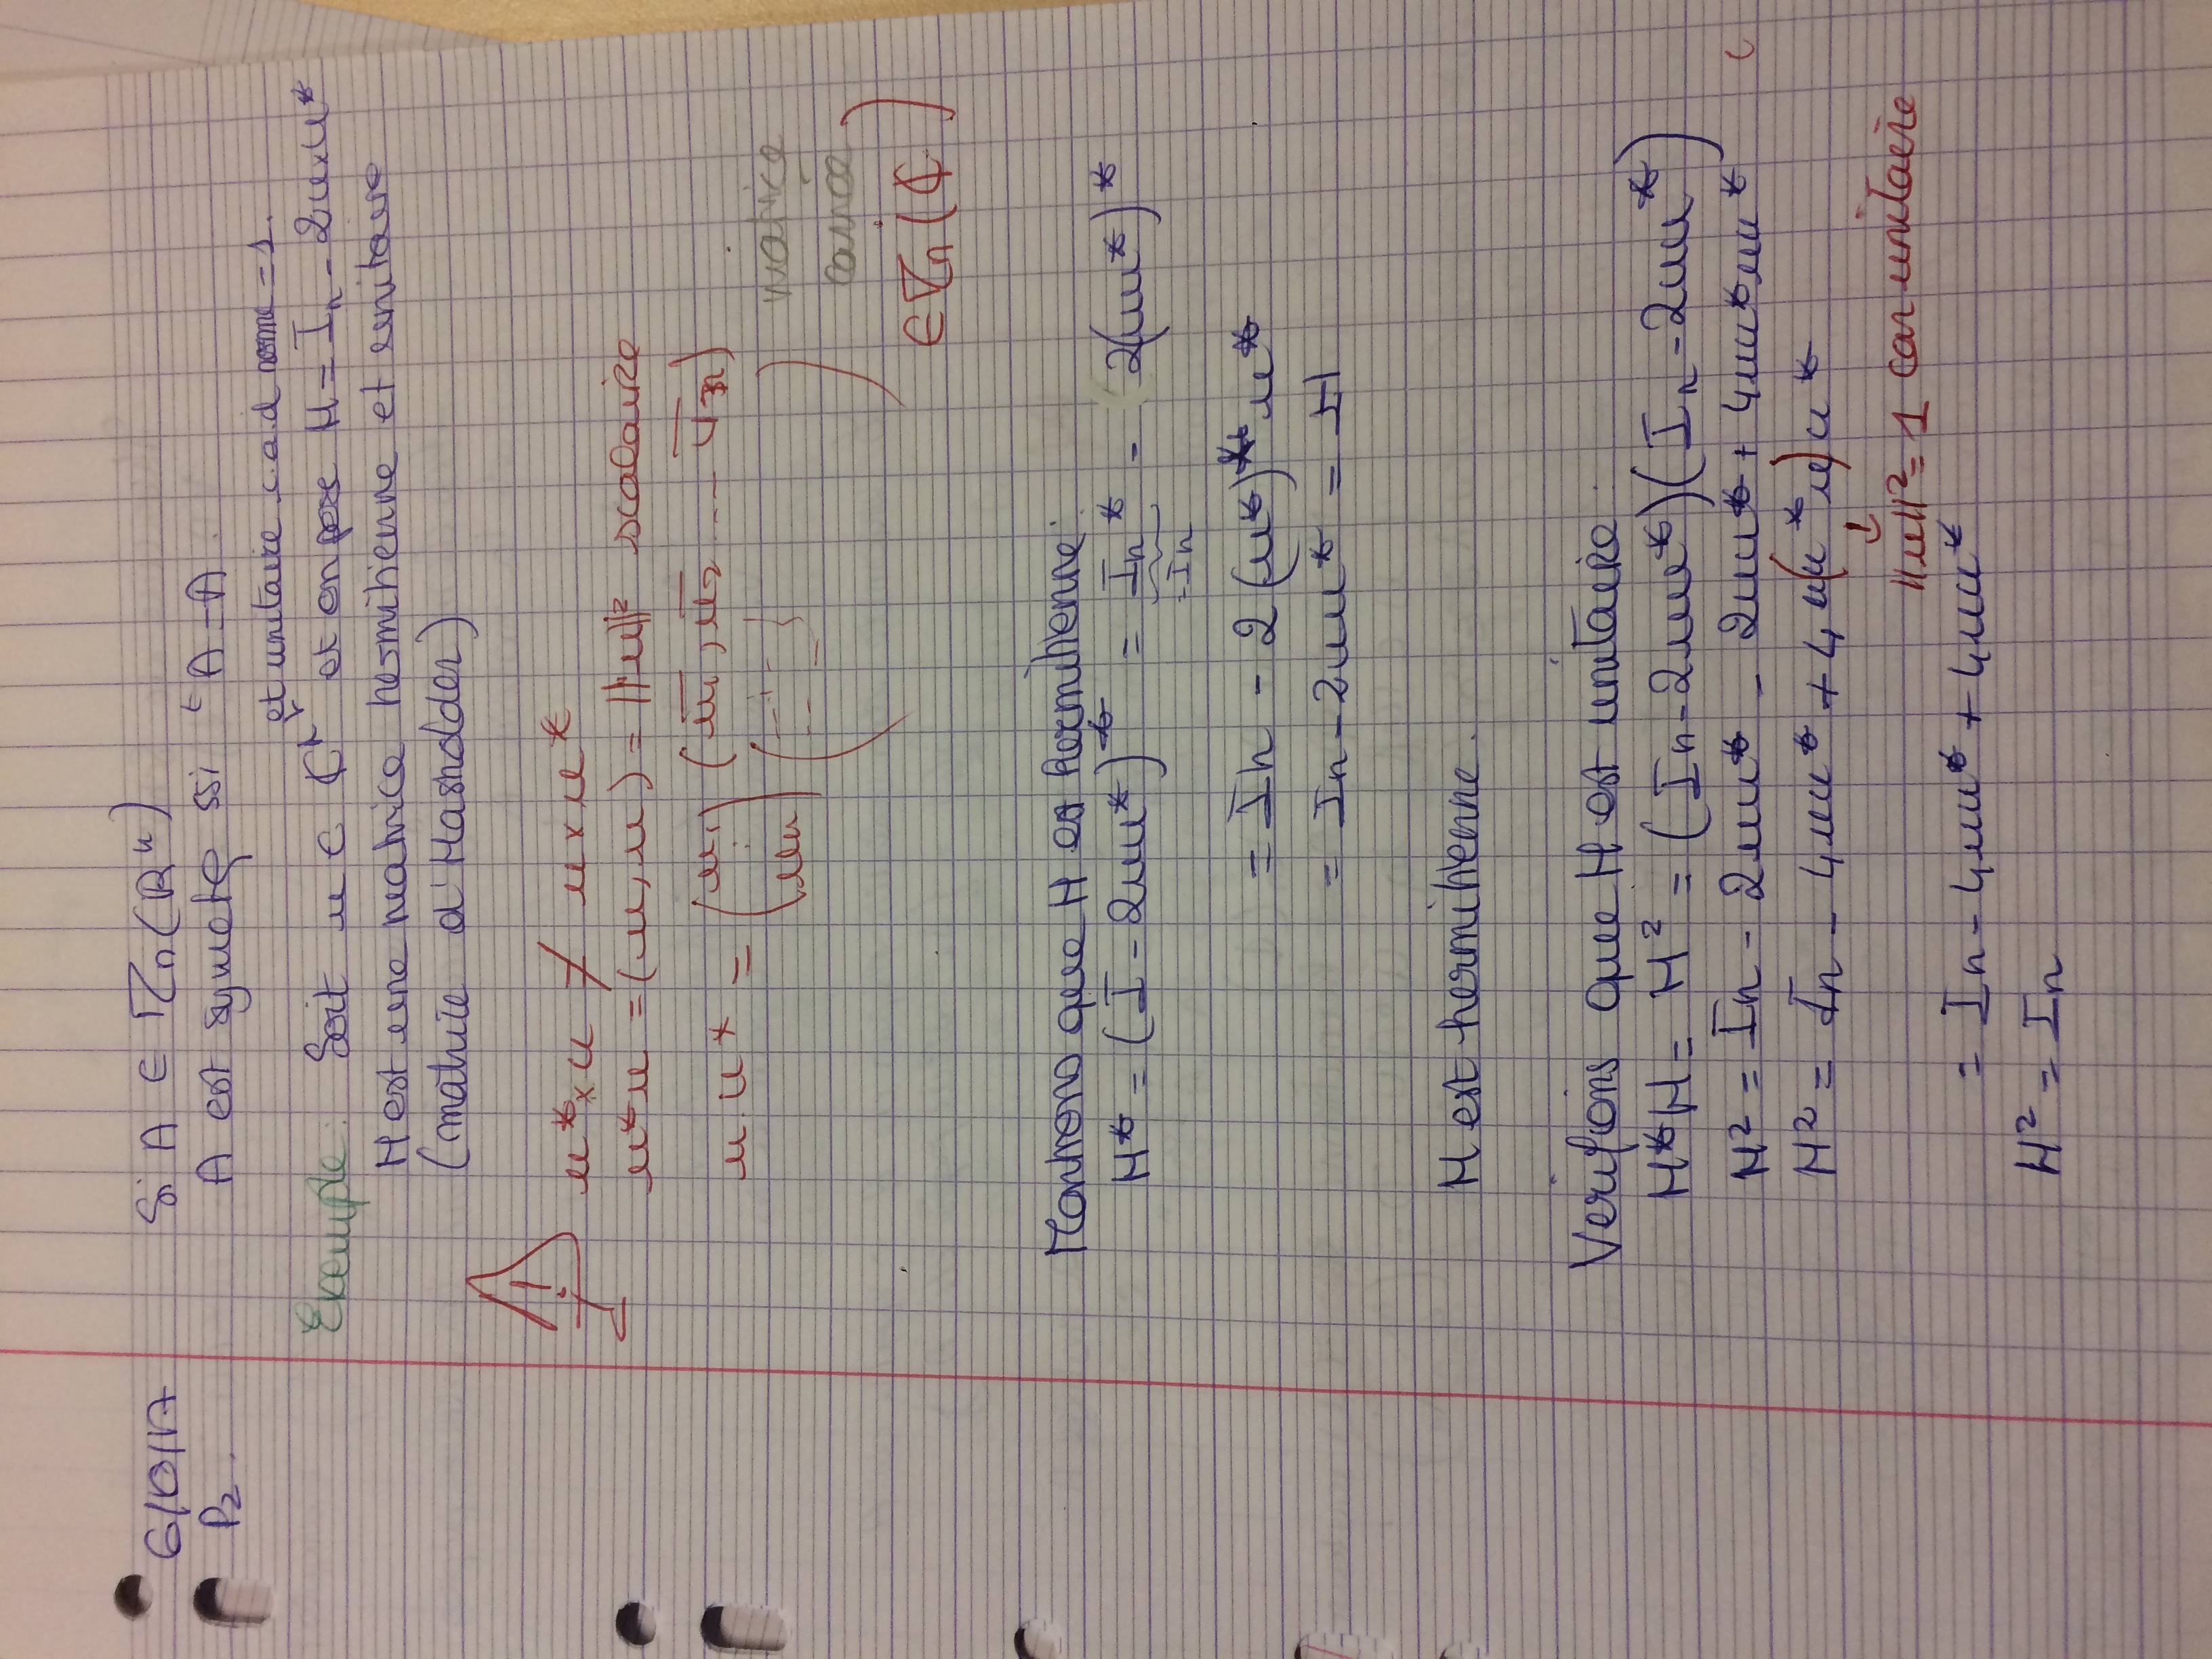 6/10/17
P2.
Si A ∈ Mn(Rⁿ)
A est symetq ssi ᵗA = A.
et unitaire c.a.d norme = 1.
Exemple: Soit u ∈ ℂⁿ et on pose H = In - 2u×u*
H est une matrice hermitienne et unitaire
(matrice d'Hasholder)
!
u*×u ≠ u×u*
u*u = (u,u) = ||u||² scalaire
u.u* = (u1 : un) (u̅1, u̅2 ... u̅n)
matrice
carrée
∈ Mn(ℂ)
Montrons que H est hermitienne:
H* = (I - 2uu*)* = In* - 2(uu*)*
= In
= In - 2(u*)* u*
= In - 2uu* = H
H est hermitienne.
Verifions que H est unitaire
H*H = H² = (In - 2uu*)(In - 2uu*)
H² = In - 2uu* - 2uu* + 4uu*uu*
H² = In - 4uu* + 4u(u*u)u*
↓
||u||² = 1 car unitaire
= In - 4uu* + 4uu*
H² = In